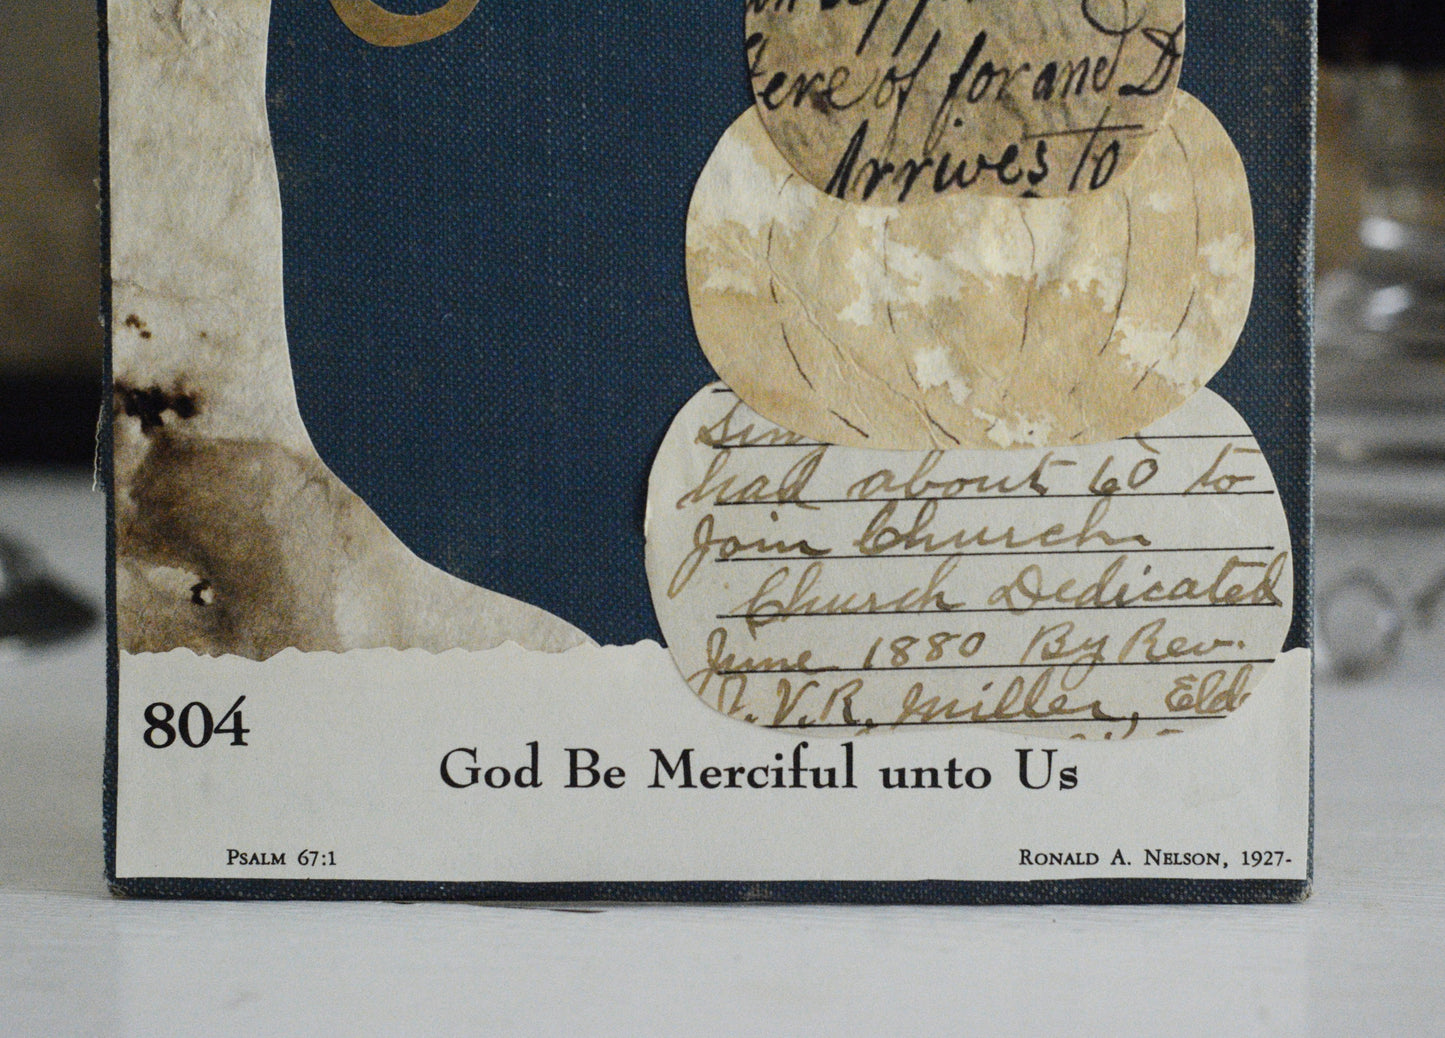 of for and D
Arrives to
had about 60 to
Join Church
Church Dedicated
June 1880 By Rev.
V.R. Miller, Eld
804
God Be Merciful unto Us
Psalm 67:1
Ronald A. Nelson, 1927-